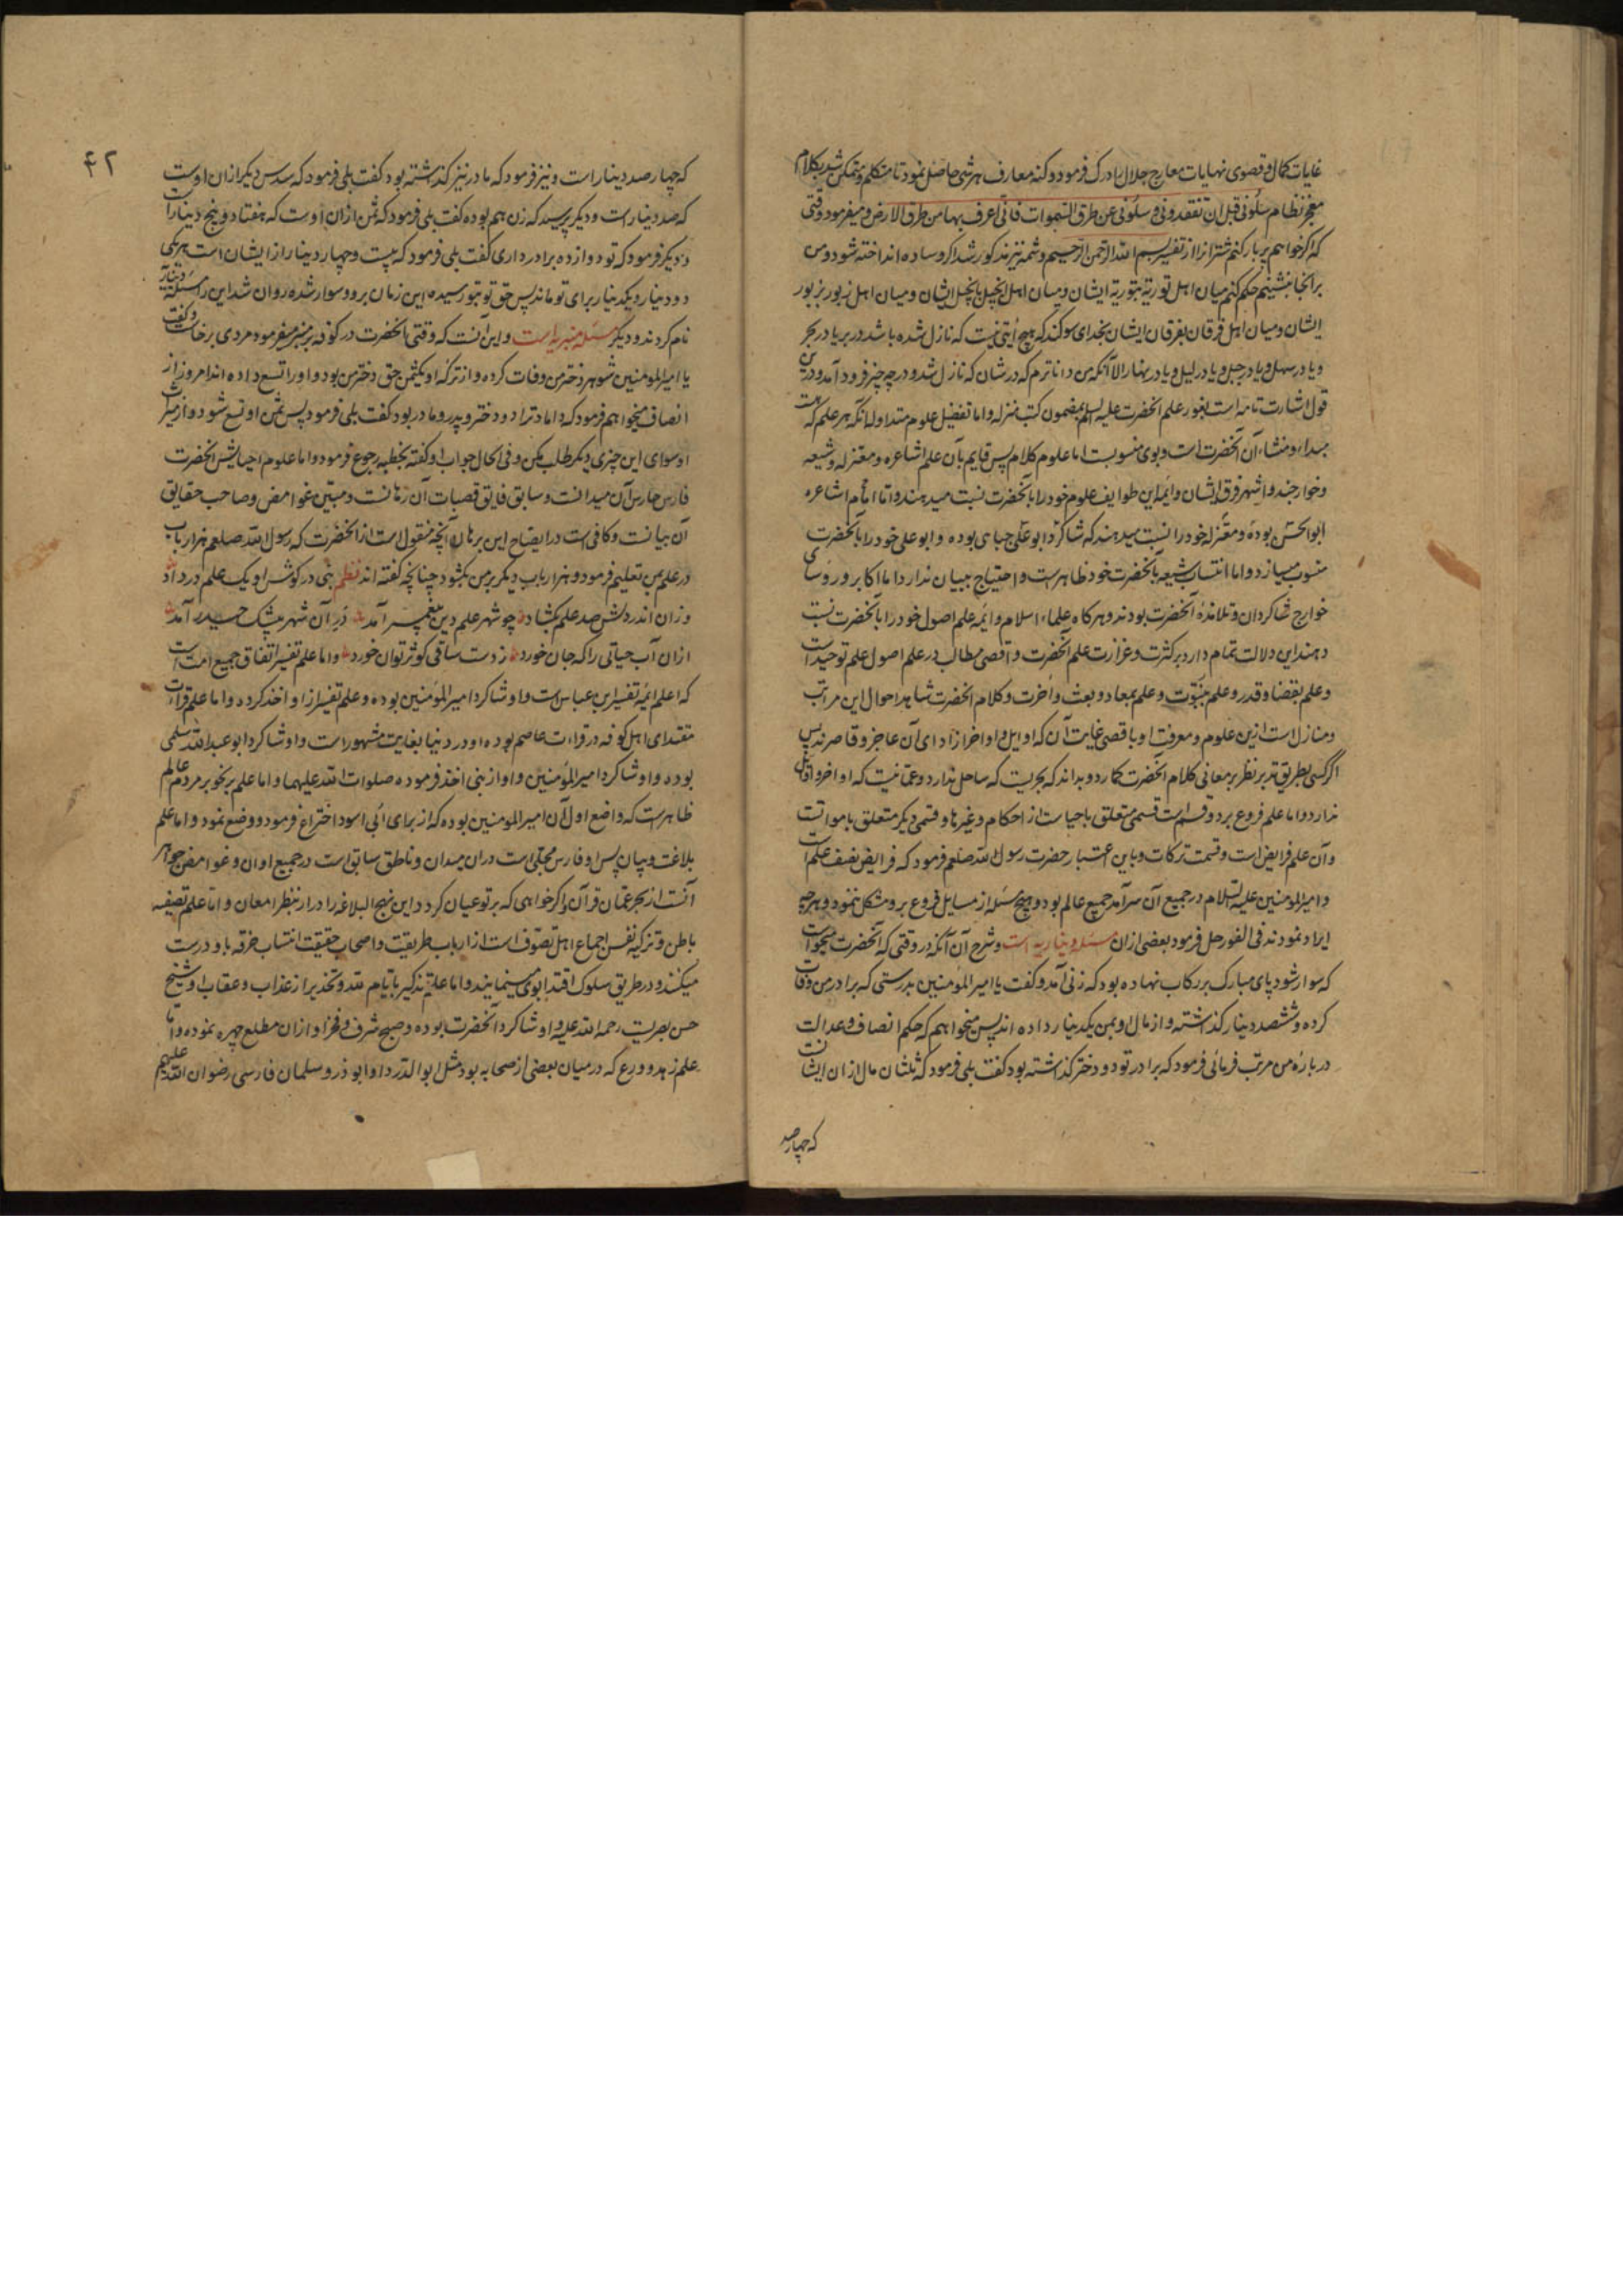 غایات کمال و قصوی نهایات معارج جلال ادراک فرمود و کنه معارف هر شی حاصل نمود تا متکلم و متمکن شد بکلام
معجز نظام سلونی قبل ان تفقدونی و سلونی عن طرق السموات فانی اعرف بها من طرق الارض و میفرمود وقتی
که اگر خواهم پربار کنم شترانرا از تفسیر بسم الله الرحمن الرحیم و شمه نیز مذکور شد اگر وساده انداخته شود و من
برانجا بنشینم حکم کنم میان اهل توریة بتوریة ایشان و میان اهل انجیل بانجیل ایشان و میان اهل زبور بزبور
ایشان و میان اهل فرقان بفرقان ایشان بخدای سوکند که هیچ آیتی نیست که نازل شده باشد در بر یا در بحر
و یا در سهل و یا در جبل و یا در لیل و یا در نهار الا آنکه من داناترم که در شان که نازل شد و در چه چیز فرود آمد و درین
قول اشارت تامه است بغور علم آنحضرت علیه السلم بمضمون کتب منزله و اما تفضیل علوم متداوله آنکه هر علم که هست
مبداء و منشاء آن آنحضرت است و بوی منسوبست اما علوم کلام پس قایم بآن علم اشاعره و معتزله و شیعه
و خوارجند و اشهر فرق ایشان و ایمه این طوایف علوم خود را بآنحضرت نسبت میدهند و اما امام اشاعره
ابوالحسن بوده و معتزله خود را نسبت میدهند که شاکرد ابو علی جبای بوده و ابو علی خود را بآنحضرت
منسوب میسازد و اما انتساب شیعه بآنحضرت خود ظاهرست و احتیاج ببیان ندارد اما اکابر و روسای
خوارج شاکردان و تلامذه آنحضرت بودند و هرکاه علماء اسلام و ایمه علم اصول خود را بآنحضرت نسبت
دهند این دلالت تمام دارد بر کثرت و غزارت علم آنحضرت و اقصی مطالب در علم اصول علم توحید است
و علم بقضا و قدر و علم بنبوت و علم بمعاد و بعث و آخرت و کلام آنحضرت شاهد احوال این مراتب
و منازل است ازین علوم و معرفت او باقصی غایت آن که اوایل و اواخر از ادای آن عاجز و قاصرند پس
اگر کسی بطریق تدبر نظر بر معانی کلام آنحضرت کمارد و بداند که بحریست که ساحل ندارد و عمّانیست که اواخر و اوایل
ندارد و اما علم فروع بر دو قسم است قسمی متعلق باحیاست از احکام و غیرها و قسمی دیکر متعلق باموا تست
و آن علم فرایض است و قسمت ترکات و باین اعتبار حضرت رسول الله صلعم فرمود که فرایض نصف علم است
و امیر المومنین علیه السلام در جمیع آن سرآمد جمیع عالم بود و هیچ مسئله از مسایل فروع برو مشکل ننمود و هرچه
ایراد نمودند فی الفور حل فرمود بعضی از ان مسئله دیناریه است و شرح آن آنکه در وقتی که آنحضرت میخواست
که سوار شود پای مبارک بر رکاب نهاده بود که زنی آمد و کفت یا امیر المؤمنین بدرستی که برادر من وفات
کرده و ششصد دینار کذاشته و از مال او بمن یکدینار داده اند پس میخواهم که حکم انصاف و عدالت
درباره من مرتب فرمائی فرمود که برادر تو دو دختر کذاشته بود کفت بلی فرمود که ثلثان مال از ان ایشانست
که چهارصد
۴۲
که چهارصد دینار است و نیز فرمود که مادر نیز کذاشته بود کفت بلی فرمود که سدس دیکر از ان اوست
که صد دینار است و دیکر پرسید که زن هم بوده کفت بلی فرمود که ثمن از ان اوست که هفتاد و پنج دینار است
و دیکر فرمود که تو دوازده برادر داری کفت بلی فرمود که بیست و چهار دینار از ان ایشان است هر یکی
دو دینار و یکدینار برای تو ماند پس حق تو بتو رسیده این زمان برو و سوار شده روان شد این را مسئله دیناریه
نام کردند و دیکر مسئله منبریه است و این آنست که وقتی آنحضرت در کوفه بر منبر میفرمود مردی برخاست و کفت
یا امیر المومنین شوهر دختر من وفات کرده و از ترکه او یکثمن حق دختر من بود و او را تسع داده اند امروز از
انصاف میخواهم فرمود که داماد ترا دو دختر و پدر و مادر بود کفت بلی فرمود پس ثمن او تسع شود و از میراث
او سوای این چیزی دیکر طلب مکن و فی الحال جواب او کفته بخطبه رجوع فرمود و اما علوم احیا پس آنحضرت
فارس حارس آن میدانست و سابق فایق قصبات آن رهانست و مبیّن غوامض و صاحب حقایق
آن بیانست و کافی است در ایضاح این برهان آنچه منقول است از آنحضرت که رسول الله صلعم هزار باب
در علم بمن تعلیم فرمود و هزار باب دیکر بر من بکشود چنانچه کفته اند نظم نبی در کوش او یک علم در داد
وزان اندر دلش صد علم بکشاد چو شهر علم دین پیغمبر آمد در آن شهر بیشک حیدر آمد
ازان آب حیاتی را که جان خورد ز دست ساقی کوثر توان خورد و اما علم تفسیر اتفاق جمیع امت است
که اعلم ایمه تفسیر ابن عباس است و او شاکرد امیر المؤمنین بوده و علم تفسیر از او اخذ کرده و اما علم قرات
مقتدای اهل کوفه در قراءت عاصم بوده او در دنیا بغایت مشهور است و او شاکرد ابو عبد الله سلمی
بوده و او شاکرد امیر المؤمنین و او از نبی اخذ فرموده صلوات الله علیهما و اما علم نحو بر مردم عالم
ظاهر است که واضع اول آن امیر المومنین بوده که از برای ابی اسود اختراع فرمود و وضع نمود و اما علم
بلاغت و بیان پس او فارس مجلی است در ان میدان و ناطق سابق است در جمیع اوان و غوامض جواهر
آنست از بحر عمّان قرآن و اگر خواهی که بر تو عیان کردد این نهج البلاغه را درآر بنظر امعان و اما علم تصفیه
باطن و تزکیه نفس اجماع اهل تصوف است از ارباب طریقت و اصحاب حقیقت انتساب خرقه باو درست
میکنند و در طریق سلوک اقتدا بوی مینمایند و اما علم تذکیر بایام الله و تحذیر از عذاب و عقاب او شیخ
حسن بصریست رحمه الله علیه و او شاکرد آنحضرت بوده و صبح شرف و فخر او از ان مطلع چهره نموده و اما
علم زهد و ورع که در میان بعضی از صحابه بود مثل ابو الدرداء و ابوذر و سلمان فارسی رضوان الله علیهم